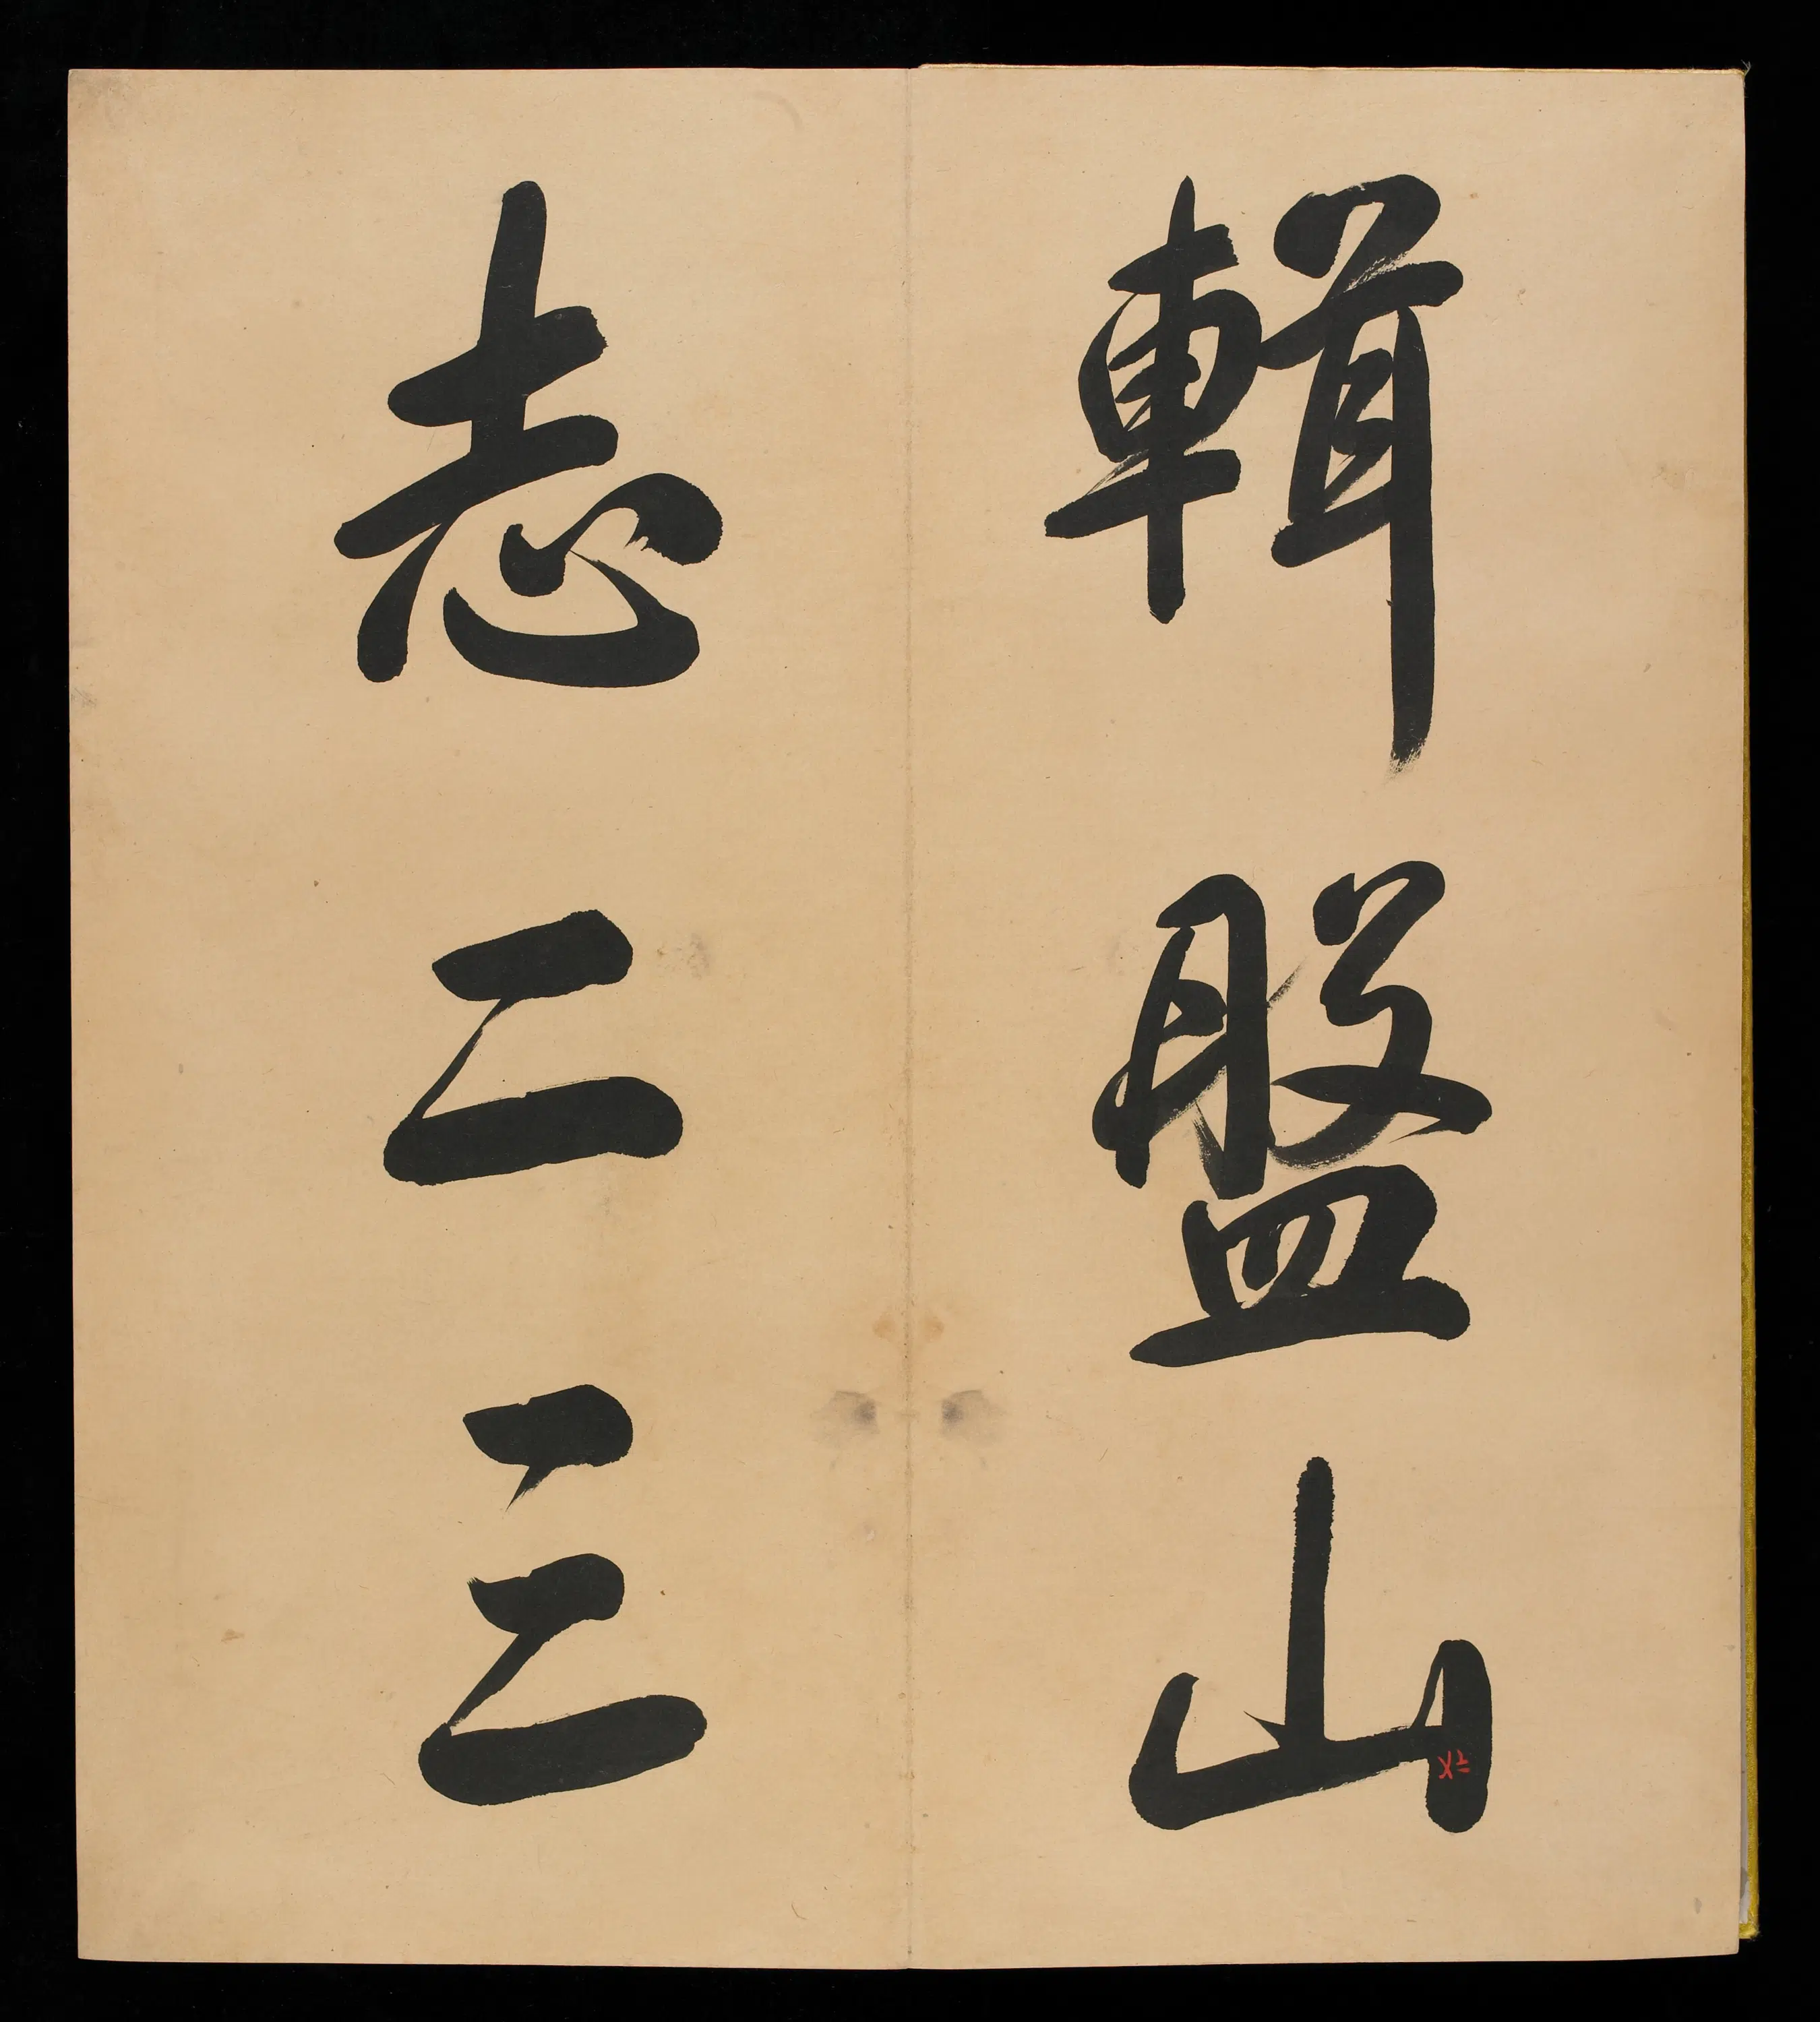 輯盤山
志二三